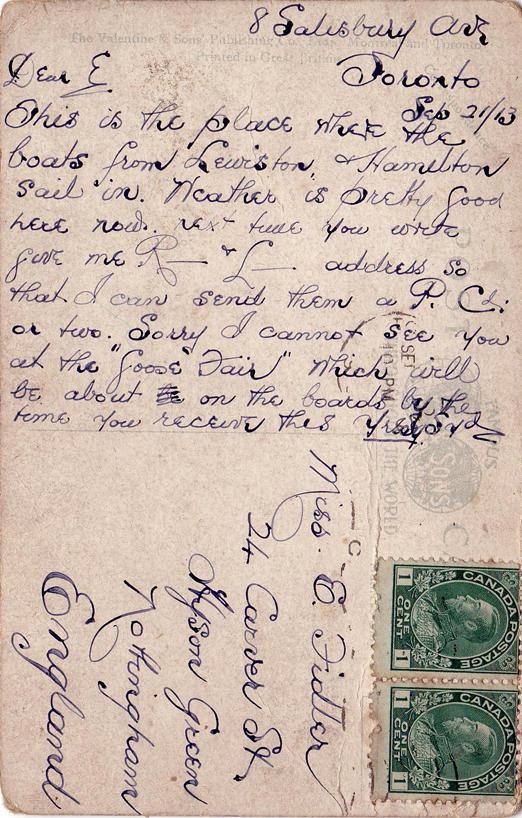 8 Salisbury Ave
The Valentine & Sons' Publishing Co., Ltd., Montreal and Toronto
Printed in Great Britain
Dear E
Toronto
Sep 21/13
This is the place where the
boats from Lewiston & Hamilton
sail in. Weather is pretty good
here now. next time you write
give me R— & L—. address so
that I can send them a P. Cd:
or two. Sorry I cannot see you
at the "Goose Fair" which will
be about on the boards by the
time you receive this
Miss. E. Fidler
24 Carver St.
Hyson Green
Nottingham
England
POST C
SE
PM
FAMOUS
THE WORLD
SONS
CANADA POSTAGE
1 ONE CENT 1
CANADA POSTAGE
1 ONE CENT 1